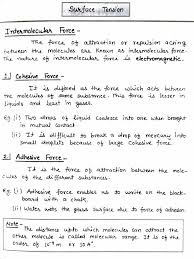 Surface Tension
Intermolecular Force -
The force of attraction or repulsion acting
between the molecules are known as intermolecular force.
The nature of intermolecular force is electromagnetic.
1. Cohesive Force -
It is defined as the force which acts between
the molecules of same substances. This force is lesser in
liquids and least in gases.
Eg: (i) Two drops of liquid coalesce into one when brought
in mutual contact.
(ii) It is difficult to break a drop of mercury into
small droplets because of large cohesive force.
2. Adhesive Force -
It is the force of attraction between the
molecules of different substances.
Eg: (i) Adhesive force enables us to write on the black-
board with a chalk.
(ii) Water wets the glass surface due to force of adhesion.
Note -
The distance upto which molecules can attract the
other molecule is called molecular range. It is of the
order of